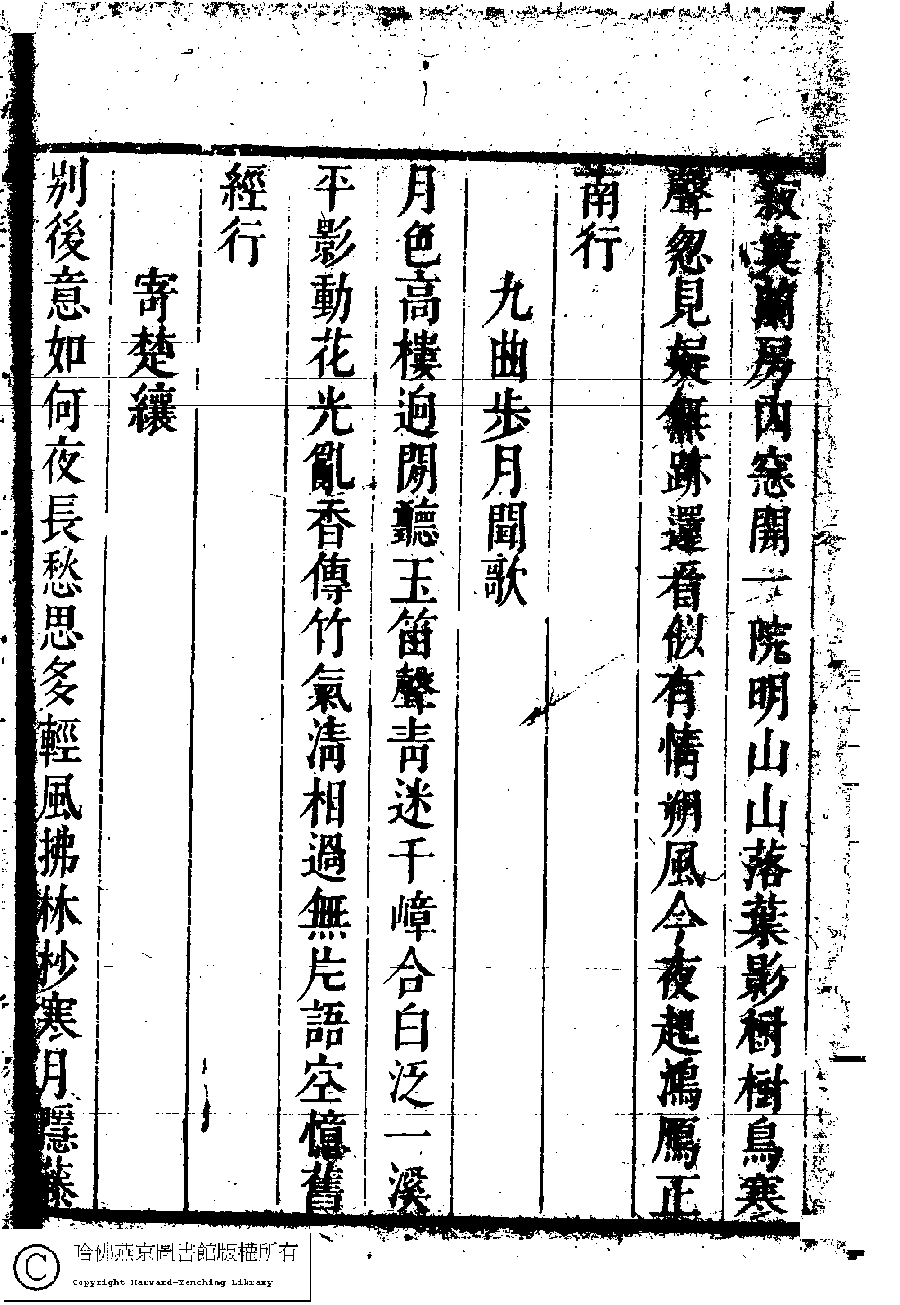 寂寞蘭房內窓開一院明山山落葉影樹樹鳥寒
聲忽見疑無跡還看似有情朔風今夜起鴻鴈正
南行
九曲步月聞歌
月色高樓迥閒聽玉笛聲靑迷千嶂合白泛一溪
平影動花光亂香傳竹氣淸相過無片語空憶舊
經行
寄楚纕
別後意如何夜長愁思多輕風拂林杪寒月隱藤
哈佛燕京圖書館版權所有
Copyright Harvard-Yenching Library